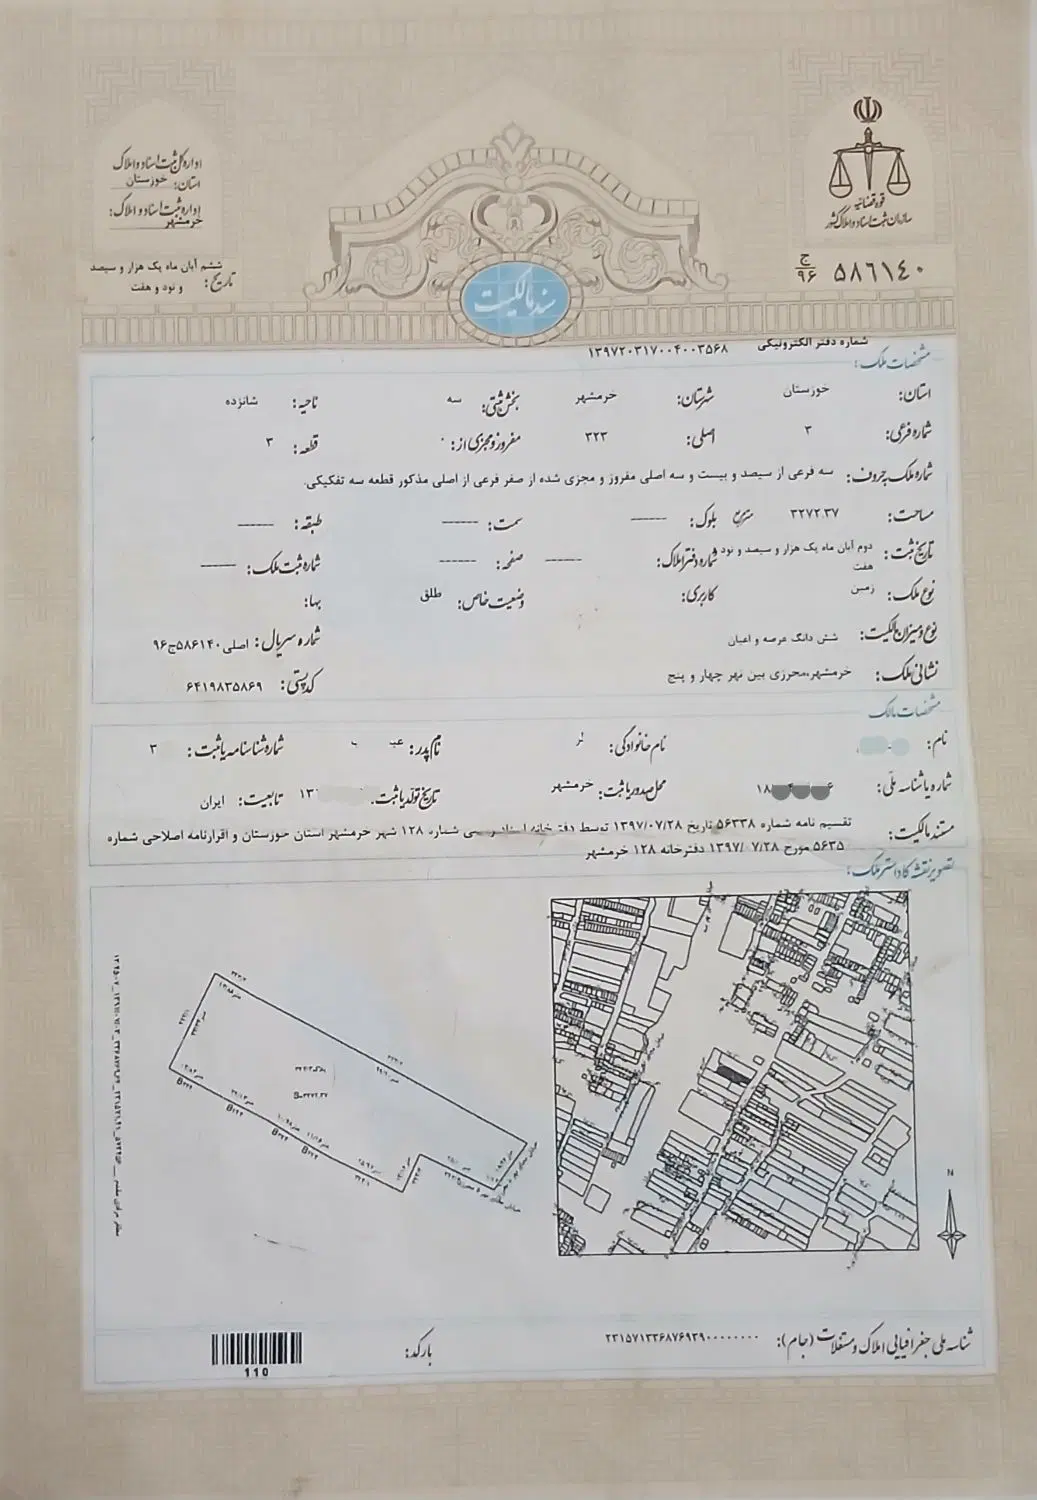 قوه قضائیه
سازمان ثبت اسناد و املاک کشور
ج
۹۶ ۵۸۶۱۴۰
اداره کل ثبت اسناد و املاک
استان: خوزستان
اداره ثبت اسناد و املاک:
خرمشهر
تاریخ: ششم آبان ماه یک هزار و سیصد
و نود و هفت
سند مالکیت
شماره دفتر الکترونیکی ۱۳۹۷۲۰۳۱۷۰۰۴۰۰۳۵۶۸
مشخصات ملک:
استان: خوزستان شهرستان: خرمشهر بخش ثبتی: سه ناحیه: شانزده
شماره فرعی: ۳ اصلی: ۳۲۳ مفروز و مجزی از: ۰ قطعه: ۳
شماره ملک بحروف: سه فرعی از سیصد و بیست و سه اصلی مفروز و مجزی شده از صفر فرعی از اصلی مذکور قطعه سه تفکیکی.
مساحت: ۳۲۷۲.۳۷ مترمربع بلوک: ------ سمت: ------ طبقه: ------
تاریخ ثبت: دوم آبان ماه یک هزار و سیصد و نود و شماره دفتر املاک: ------ صفحه: ------ شماره ثبت ملک: ------
هفت
نوع ملک: زمین کاربری: وضعیت خاص: طلق بها:
نوع و میزان مالکیت: شش دانگ عرصه و اعیان شماره سریال: اصلی ۵۸۶۱۴۰ج۹۶
نشانی ملک: خرمشهر،محرزی بین نهر چهار و پنج کد پستی: ۶۴۱۹۸۳۵۸۶۹
مشخصات مالک
نام: نام خانوادگی: نام پدر: شماره شناسنامه یا ثبت: ۳
شماره یا شناسه ملی: محل صدور یا ثبت: خرمشهر تاریخ تولد یا ثبت: تابعیت: ایران
مستند مالکیت: تقسیم نامه شماره ۵۶۳۳۸ تاریخ ۱۳۹۷/۰۷/۲۸ توسط دفترخانه اسناد رسمی شماره ۱۲۸ شهر خرمشهر استان خوزستان و اقرارنامه اصلاحی شماره
۵۶۳۵ مورخ ۱۳۹۷/۰۷/۲۸ دفترخانه ۱۲۸ خرمشهر
تصویر نقشه کاداستر ملک:
S=۳۲۷۲.۳۷
N
شناسه ملی جغرافیایی املاک و مستغلات (جام): ۲۳۱۵۷۱۳۳۶۸۷۶۹۳۹۰۰۰۰۰۰۰۰
بارکد:
110